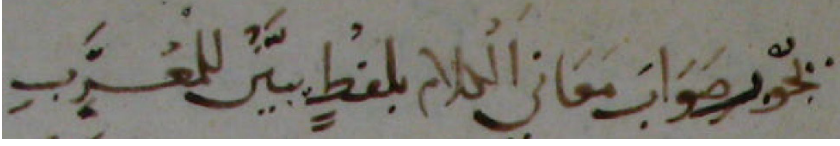 نحو صَوَابَ مَعَاني الْكلام بلفظٍ بيَّن للمُعْرِبِ